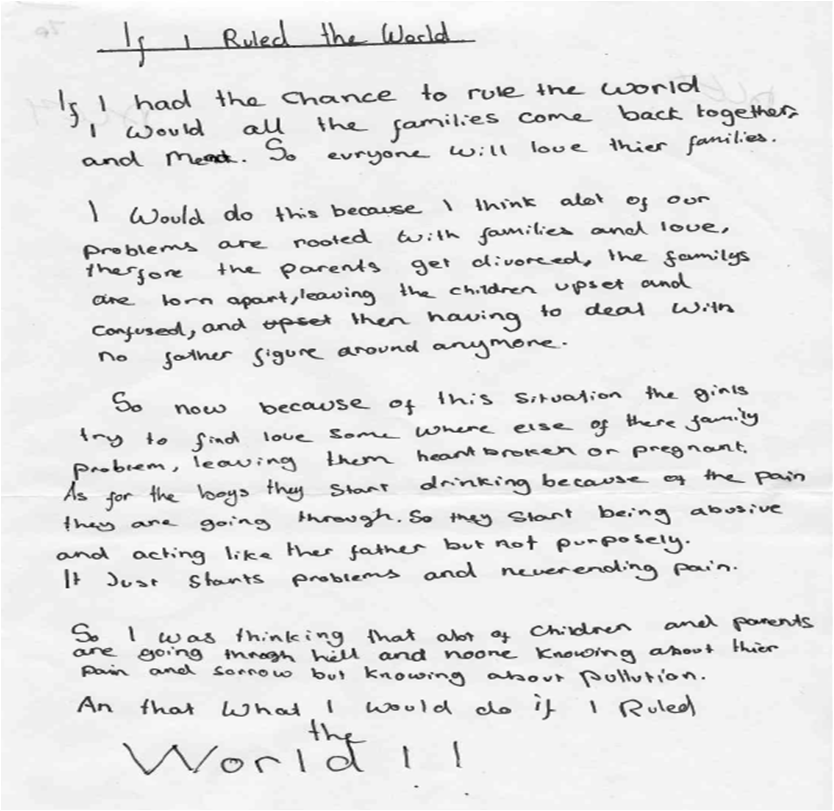 If I Ruled the World
If I had the Chance to rule the world
I would all the families come back together,
and Mend. So euryone will love thier families.
I Would do this because I think alot of our
problems are rooted with families and love,
therfore the parents get divorced, the familys
are torn apart, leaving the children upset and
confused, and upset then having to deal with
no father figure around anymore.
So now because of this situation the girls
try to find love some where else of there family
problem, leaving them heartbroken or pregnant.
As for the boys they start drinking because of the pain
they are going through. So they start being abusive
and acting like ther father but not purposely.
It Just starts problems and neverending pain.
So I was thinking that alot of children and parents
are going throgh hell and noone knowing about thier
pain and sorrow but knowing about pollution.
An that what I would do if I Ruled
the
World!!